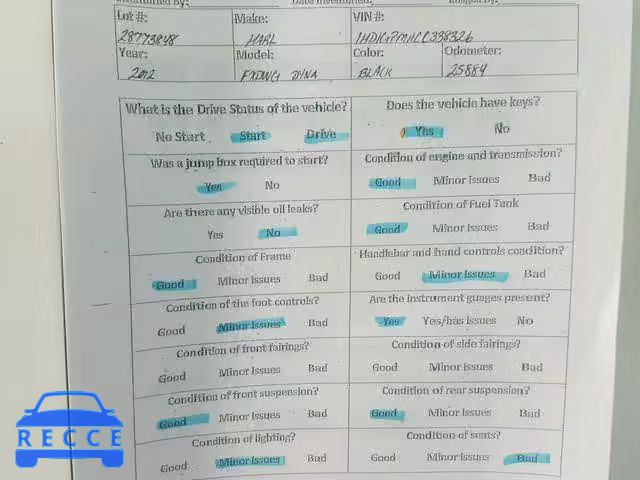 Lot #: Make: VIN #:
28773848 HARL 1HD1GPM1XCC338326
Year: Model: Color: Odometer:
2012 FXDWG DYNA BLACK 25884
What is the Drive Status of the vehicle? Does the vehicle have keys?
No Start Start Drive Yes No
Was a jump box required to start? Condition of engine and transmission?
Yes No Good Minor Issues Bad
Are there any visible oil leaks? Condition of Fuel Tank
Yes No Good Minor Issues Bad
Condition of Frame Handlebar and hand controls condition?
Good Minor Issues Bad Good Minor Issues Bad
Condition of the foot controls? Are the instrument guages present?
Good Minor Issues Bad Yes Yes/has Issues No
Condition of front fairings? Condition of side fairings?
Good Minor Issues Bad Good Minor Issues Bad
Condition of front suspension? Condition of rear suspension?
Good Minor Issues Bad Good Minor Issues Bad
Condition of lighting? Condition of seats?
Good Minor Issues Bad Good Minor Issues Bad
RECCE